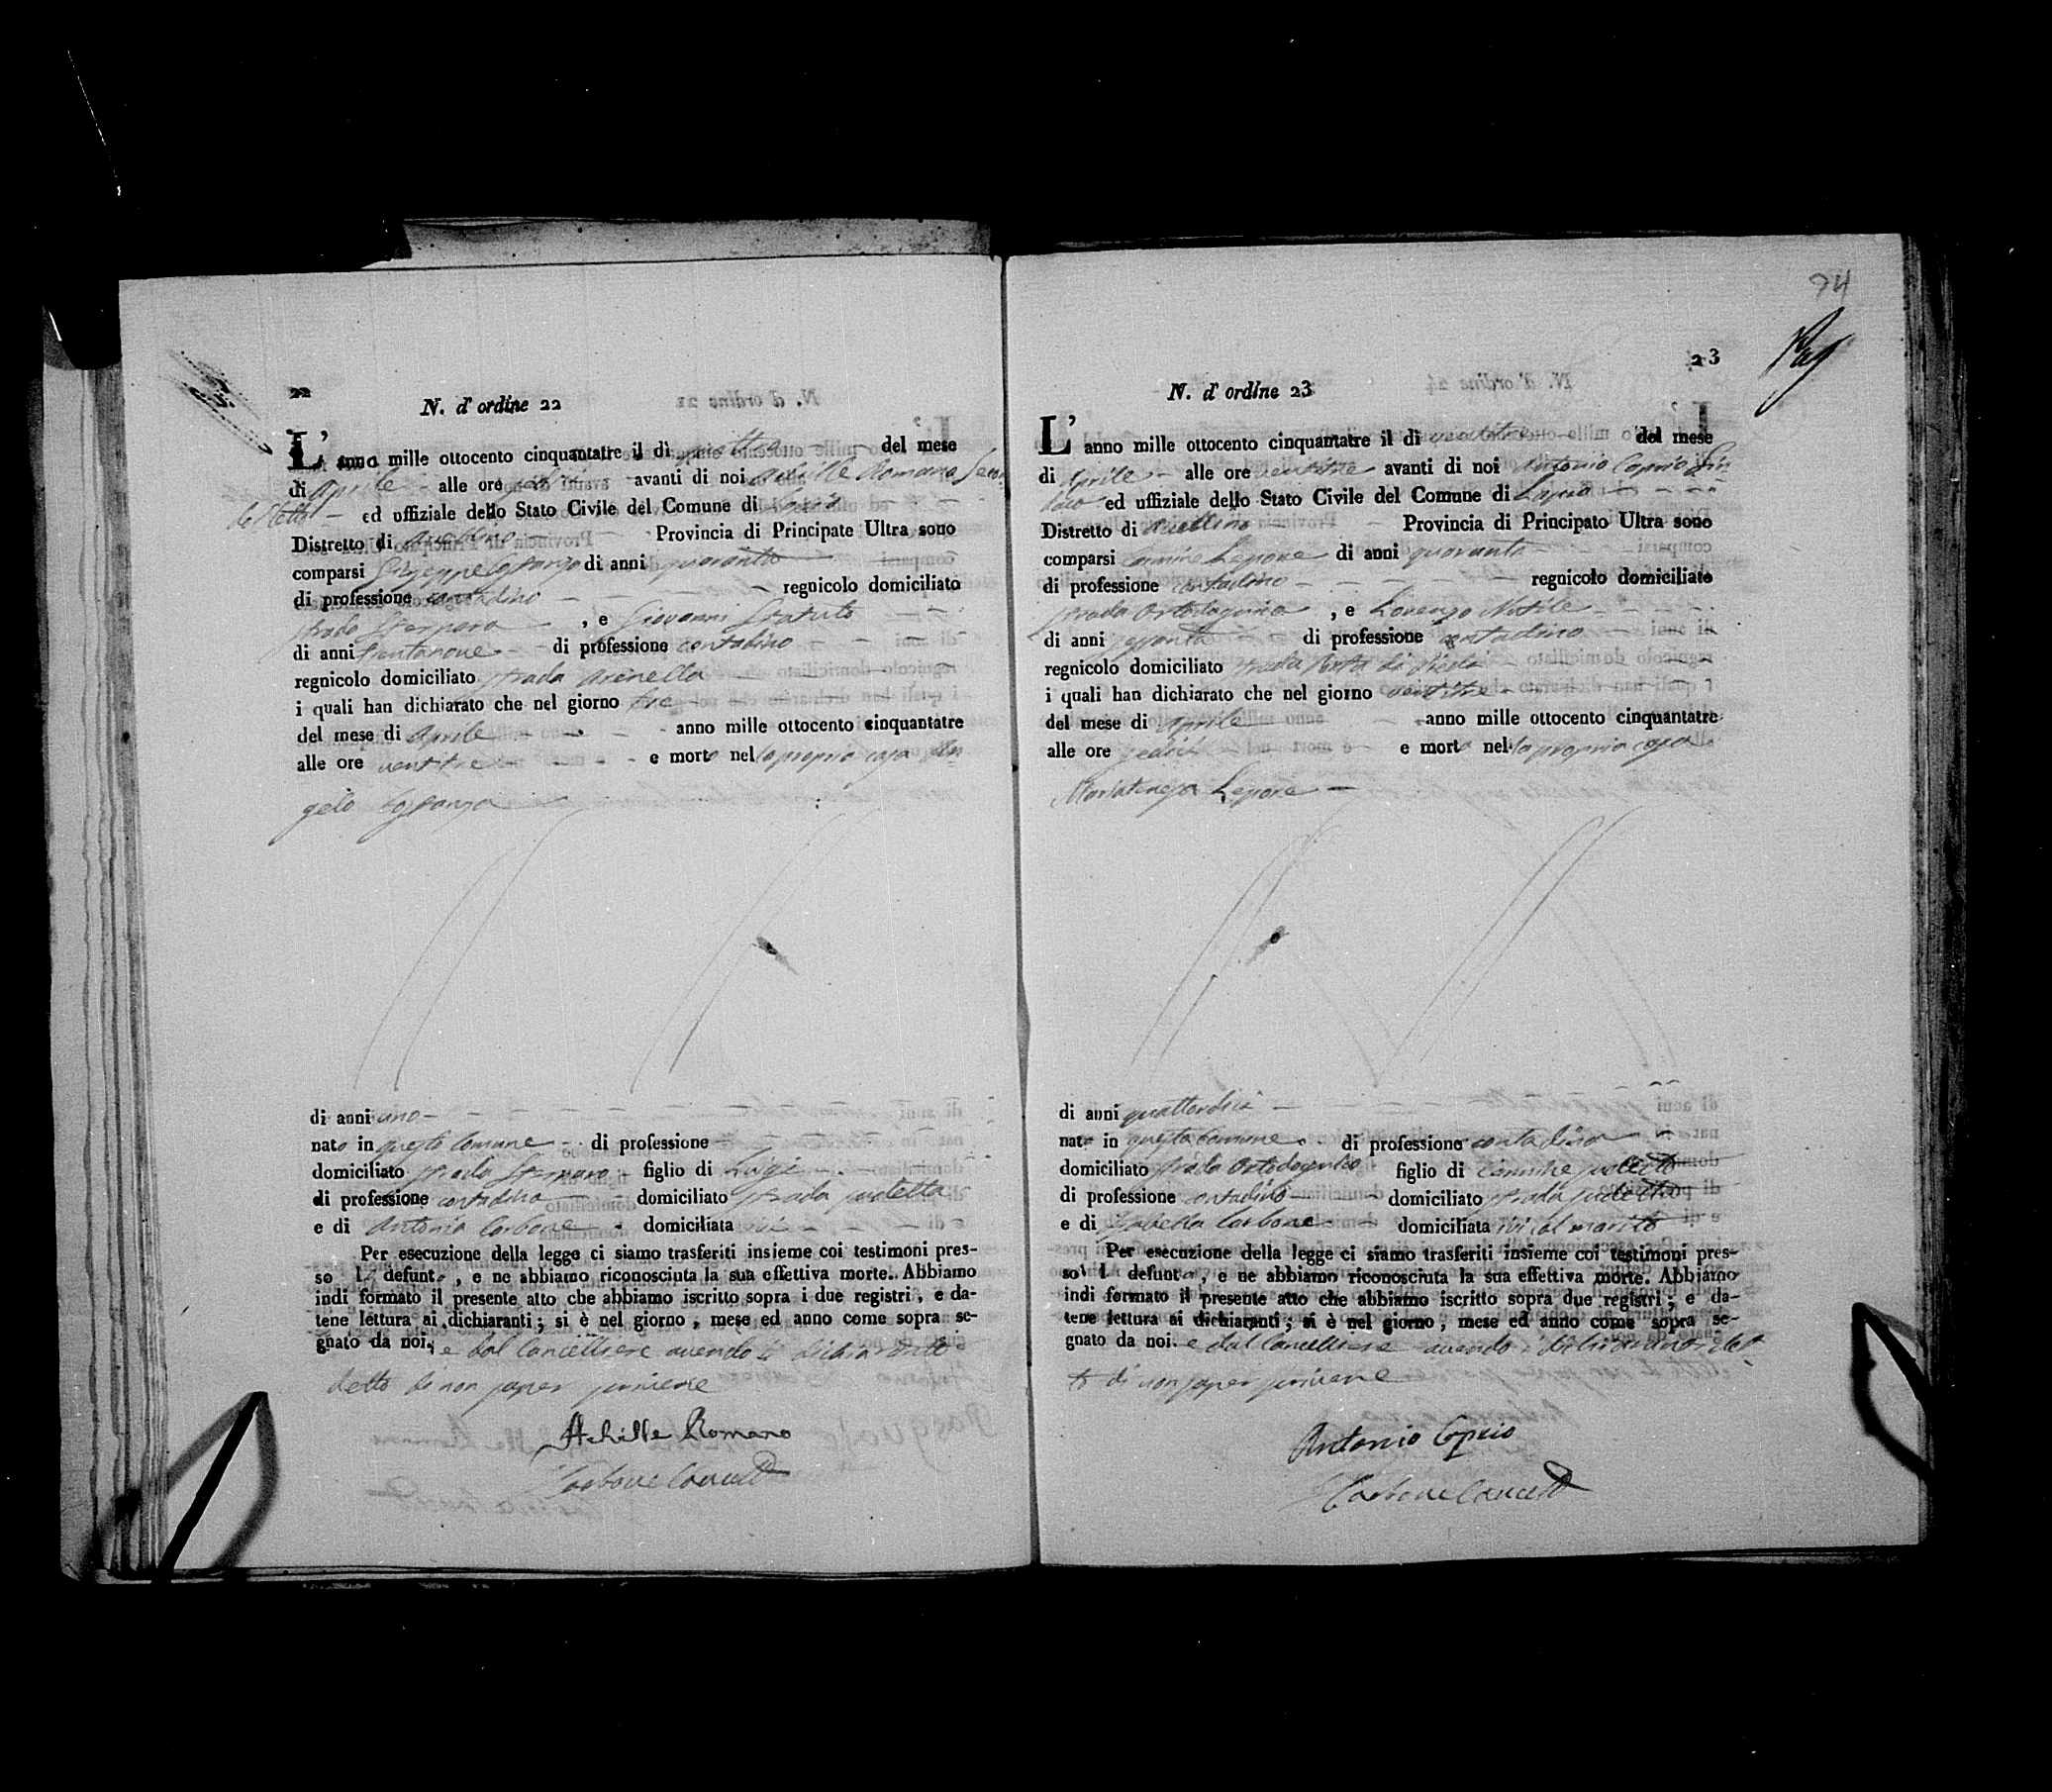 22
N. d' ordine 22
L' anno mille ottocento cinquantatre il dì del mese
di Aprile alle ore avanti di noi Achille Romano Secon
do Eletto ed uffiziale dello Stato Civile del Comune di Lapio
Distretto di Avellino Provincia di Principato Ultra sono
comparsi Giuseppe Costanzo di anni quaranta
di professione contadino regnicolo domiciliato
strada , e Giovanni Statuto
di anni trentanove di professione contadino
regnicolo domiciliato strada Arenella
i quali han dichiarato che nel giorno tre
del mese di Aprile anno mille ottocento cinquantatre
alle ore ventitre e morto nella propria casa An
gelo Costanzo
di anni uno
nato in questo Comune di professione
domiciliato strada figlio di Luigi
di professione contadino domiciliato strada suddetta
e di Antonia Carbone domiciliata ivi
Per esecuzione della legge ci siamo trasferiti insieme coi testimoni pres-
so l defunto , e ne abbiamo riconosciuta la sua effettiva morte. Abbiamo
indi formato il presente atto che abbiamo iscritto sopra i due registri , e da-
tene lettura ai dichiaranti ; si è nel giorno , mese ed anno come sopra se-
gnato da noi. e dal Cancelliere avendo i dichiaranti
detto di non saper scrivere
Achille Romano
Carbone Cancell
74
23
N. d' ordine 23
L' anno mille ottocento cinquantatre il dì ventitre del mese
di Aprile alle ore ventitre avanti di noi Antonio Caprio Sin
daco ed uffiziale dello Stato Civile del Comune di Lapio
Distretto di Avellino Provincia di Principato Ultra sono
comparsi Carmine Lepore di anni quaranta
di professione contadino regnicolo domiciliato
strada , e Lorenzo
di anni sessanta di professione contadino
regnicolo domiciliato strada
i quali han dichiarato che nel giorno ventitre
del mese di Aprile anno mille ottocento cinquantatre
alle ore sedici e morta nella propria casa
Mariateresa Lepore
di anni quattordici
nata in questo Comune di professione contadina
domiciliato strada figlio di Carmine suddetto
di professione contadino domiciliato strada suddetta
e di Isabella Carbone domiciliata ivi col marito
Per esecuzione della legge ci siamo trasferiti insieme coi testimoni pres-
so l defunta , e ne abbiamo riconosciuta la sua effettiva morte. Abbiamo
indi formato il presente atto che abbiamo iscritto sopra due registri ; e da-
tene lettura ai dichiaranti ; si è nel giorno , mese ed anno come sopra se-
gnato da noi. e dal Cancelliere avendo i dichiaranti det
to di non saper scrivere
Antonio Caprio
Carbone Cancell